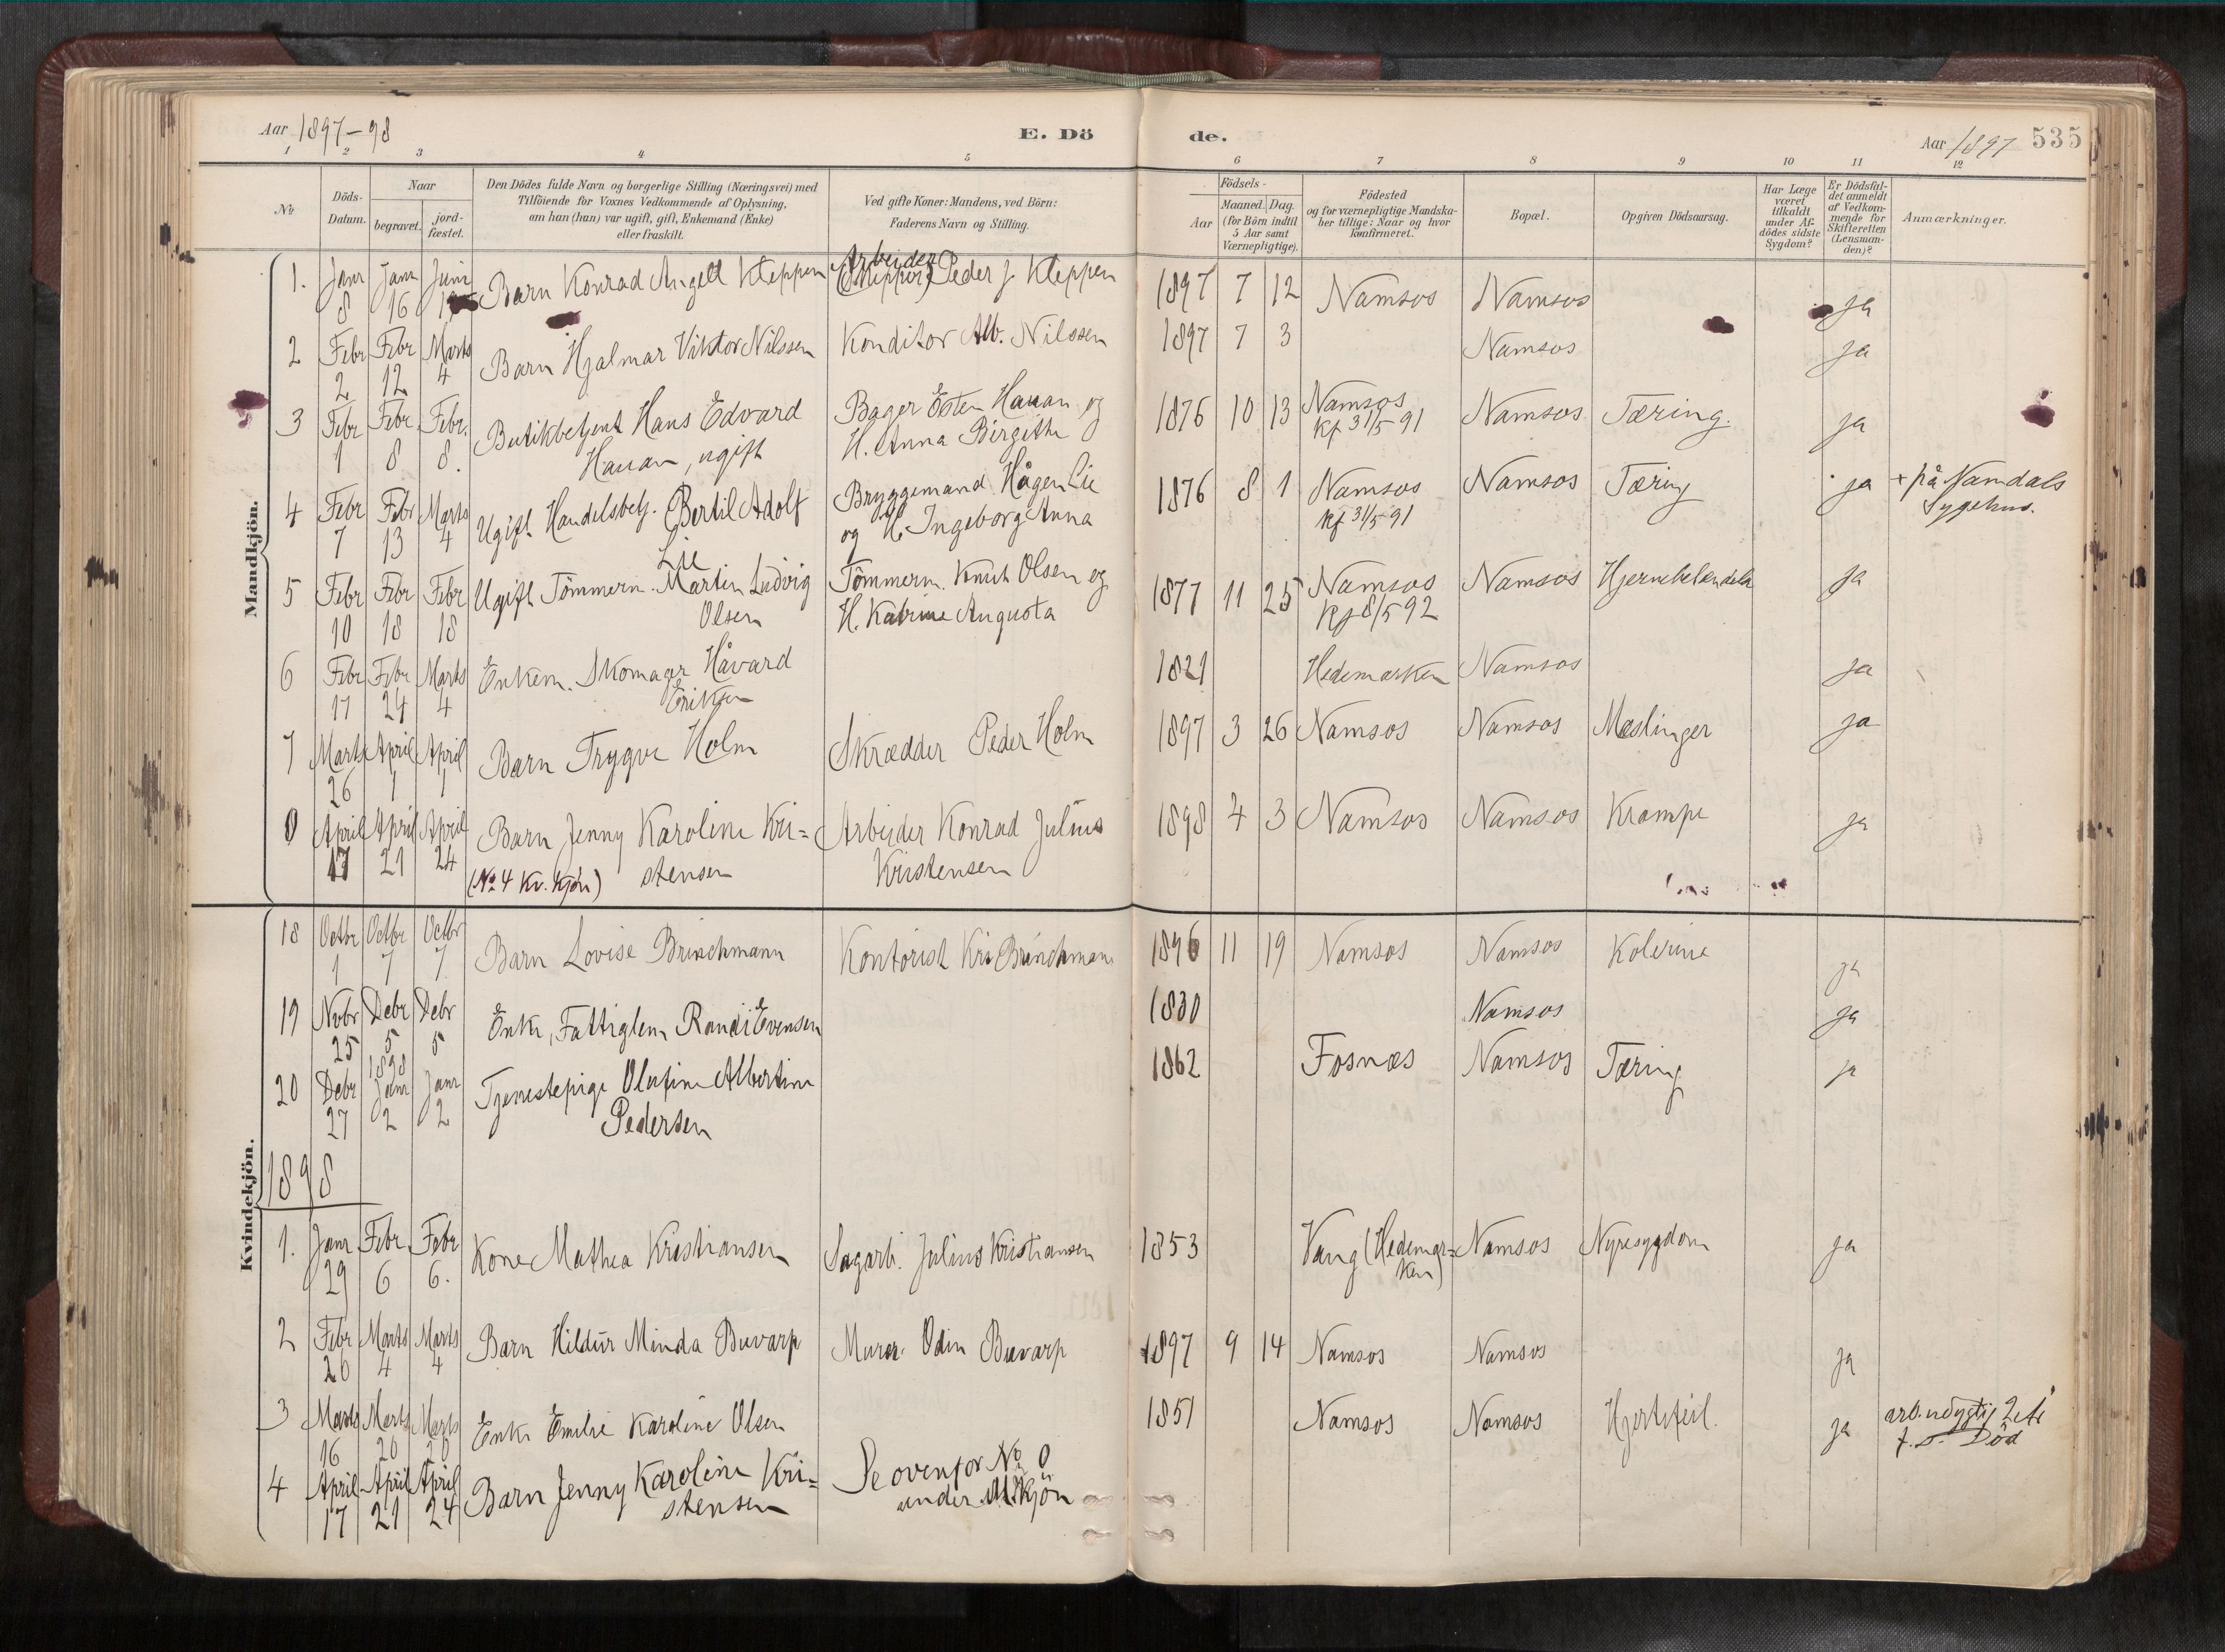 Aar 1897-98
E. Dö
de.
Aar 1897
535
1 2 3 4 5 6 7 8 9 10 11 12
No
Döds-Datum.
Naar
begravet.
jord-fæstet.
Den Dödes fulde Navn og borgerlige Stilling (Næringsvei) med
Tilföiende for Voxnes Vedkommende af Oplysning,
om han (hun) var ugift, gift, Enkemand (Enke)
eller fraskilt.
Ved gifte Koner: Mandens, ved Börn:
Faderens Navn og Stilling.
Födsels-
Aar
Maaned. Dag.
(for Börn indtil
5 Aar samt
Værnepligtige).
Födested
og for værnepligtige Mandska-
ber tillige: Naar og hvor
konfirmeret.
Bopæl.
Opgiven Dödsaarsag.
Har Læge
været
tilkaldt
under Af-
dödes sidste
Sygdom?
Er Dödsfal-
det anmeldt
af Vedkom-
mende for
Skifteretten
(Lensman-
den)?
Anmærkninger.
Mandkjön.
Arbeider
1. Janr Janr Juni Barn Konrad Angell Kleppen Peder J Kleppen 1897 7 12 Namsos Namsos ja
8 16
2 Febr Febr Marts Barn Hjalmar Viktor Nilssen Konditor Alb. Nilssen 1897 7 3 Namsos ja
2 12 4
3 Febr Febr Febr. Butikbetjent Hans Edvard Bager Esten Hauan og 1876 10 13 Namsos Namsos Tæring. ja
1 8 8. Hauan, ugift H. Anna Birgithe kf 31/5 91
4 Febr Febr Marts Ugift Handelsbetj. Bertil Adolf Bryggemand Hågen Lie 1876 8 1 Namsos Namsos Tæring ja + på Namdals
7 13 4 Lie og H. Ingeborg Anna kf 31/5 91 Sygehus.
5 Febr Febr Febr Ugift Tömmerm. Martin Ludvig Tömmerm. Knut Olsen og 1877 11 25 Namsos Namsos ja
10 18 18 Olsen H. Katrine Augusta kf 8/5 92
6 Febr Febr Marts Enkem. Skomager Håvard 1821 Hedemarken Namsos ja
17 24 4 Eriksen
7 Marts April April Barn Trygve Holm Skrædder Peder Holm 1897 3 26 Namsos Namsos Mæslinger ja
26 1 1
0 April April April Barn Jenny Karoline Kri= Arbeider Konrad Julius 1898 4 3 Namsos Namsos Krampe ja
17 21 24 (No 4 Kv. kjön) stensen Kristensen
Kvindekjön.
18 Octbr Octbr Octbr Barn Lovise Brinchmann Kontorist Kri Brinchmann 1896 11 19 Namsos Namsos Kolerine ja
1 7 7.
19 Novbr Debr Debr Enke, Fattiglem Randi Evensen 1830 Namsos ja
25 5 5
1898
20 Debr Janr Janr Tjenestepige Olufine Albertine 1862 Fosnæs Namsos Tæring ja
27 2 2 Pedersen
1898
1. Janr Febr Febr Kone Mathea Kristiansen Sagarb. Julius Kristiansen 1853 Vang (Hedemar= Namsos Nyresygdom ja
29 6 6. ken)
2 Febr Marts Marts Barn Hildur Minda Buvarp Murer Odin Buvarp 1897 9 14 Namsos Namsos ja
26 4 4
3 Marts Marts Marts Enke Emilie Karoline Olsen 1851 Namsos Namsos Hjertefeil. ja
16 20 20 Död
4 April April April Barn Jenny Karoline Kri= Se ovenfor No 0
17 21 24 stensen under M.kjön